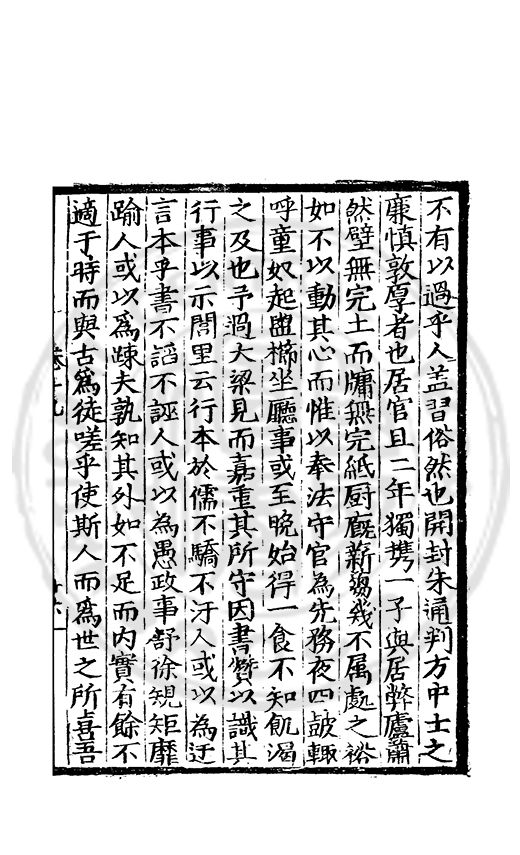 不有以過乎人盖習俗然也開封朱通判方中士之
廉慎敦厚者也居官且二年獨携一子與居弊廬蕭
然壁無完土而牖無完紙厨廐薪蒭幾不属處之裕
如不以動其心而惟以奉法守官為先務夜四鼓輙
呼童奴起盥櫛坐廳事或至晚始得一食不知飢渴
之及也予過大梁見而嘉重其所守因書贊以識其
行事以示閭里云行本於儒不驕不汙人或以為迂
言本乎書不謟不誣人或以為愚政事舒徐規矩靡
踰人或以爲踈夫孰知其外如不足而内實有餘不
適于時而與古爲徒嗟乎使斯人而爲世之所喜吾
卷十九